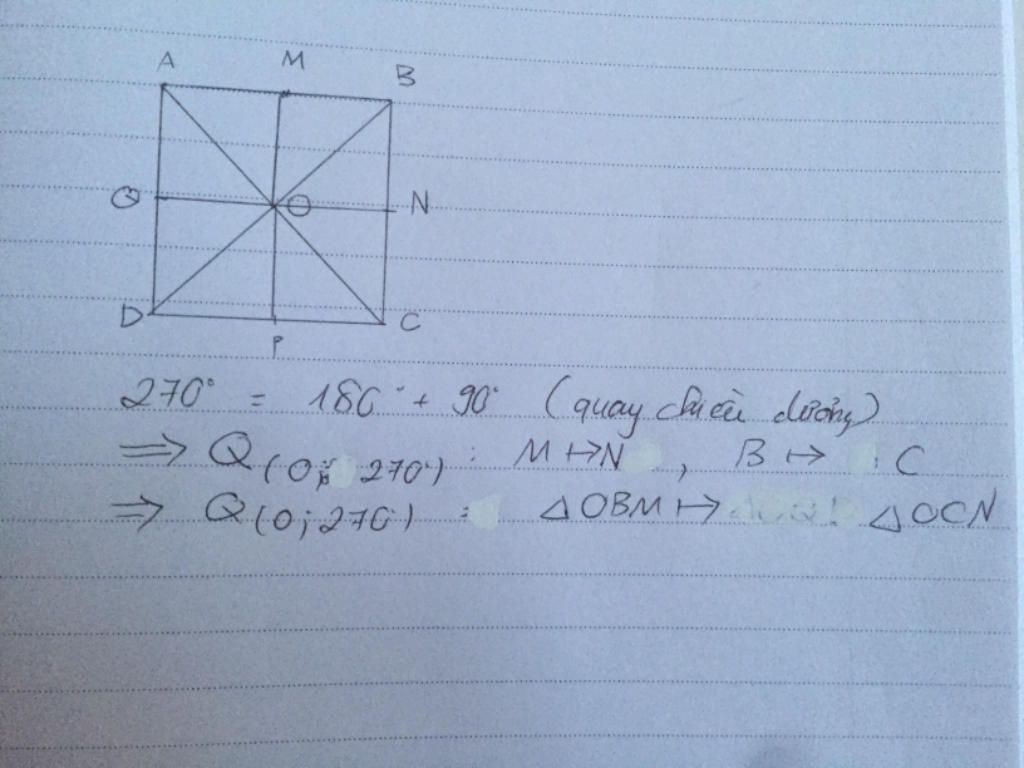 A M B
Q O N
D P C
270° = 180° + 90° (quay chiều dương)
⟹ Q(O; 270°) : M ↦ N , B ↦ C
⟹ Q(O; 270°) : △OBM ↦ △OCN